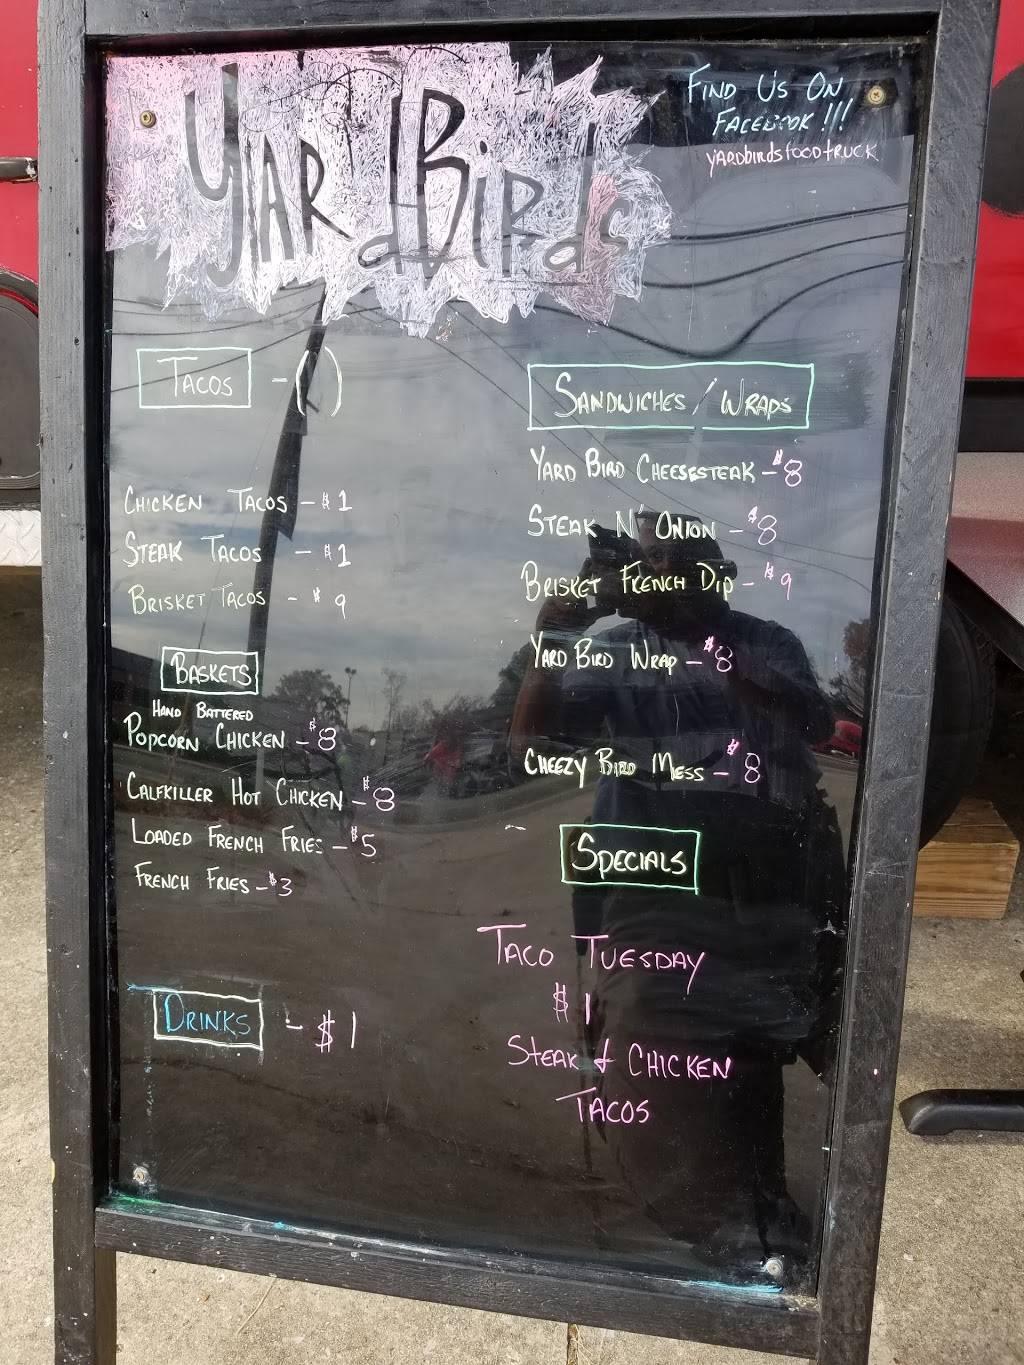 YARdBiRds
FIND US ON
FACEBOOK!!!
yARdbirdsfoodtRUCK
TACOS - ( )
CHICKEN TACOS - $1
STEAK TACOS - $1
BRISKET TACOS - $9
BASKETS
HAND BATTERED
POPCORN CHICKEN - $8
CALFKILLER HOT CHICKEN - $8
LOADED FRENCH FRIES - $5
FRENCH FRIES - $3
DRINKS - $1
SANDWICHES / WRAPS
YARD BIRD CHEESESTEAK - $8
STEAK N' ONION - $8
BRISKET FRENCH DIP - $9
YARD BIRD WRAP - $8
CHEEZY BIRD MESS - $8
SPECIALS
TACO TUESDAY
$1
STEAK & CHICKEN
TACOS